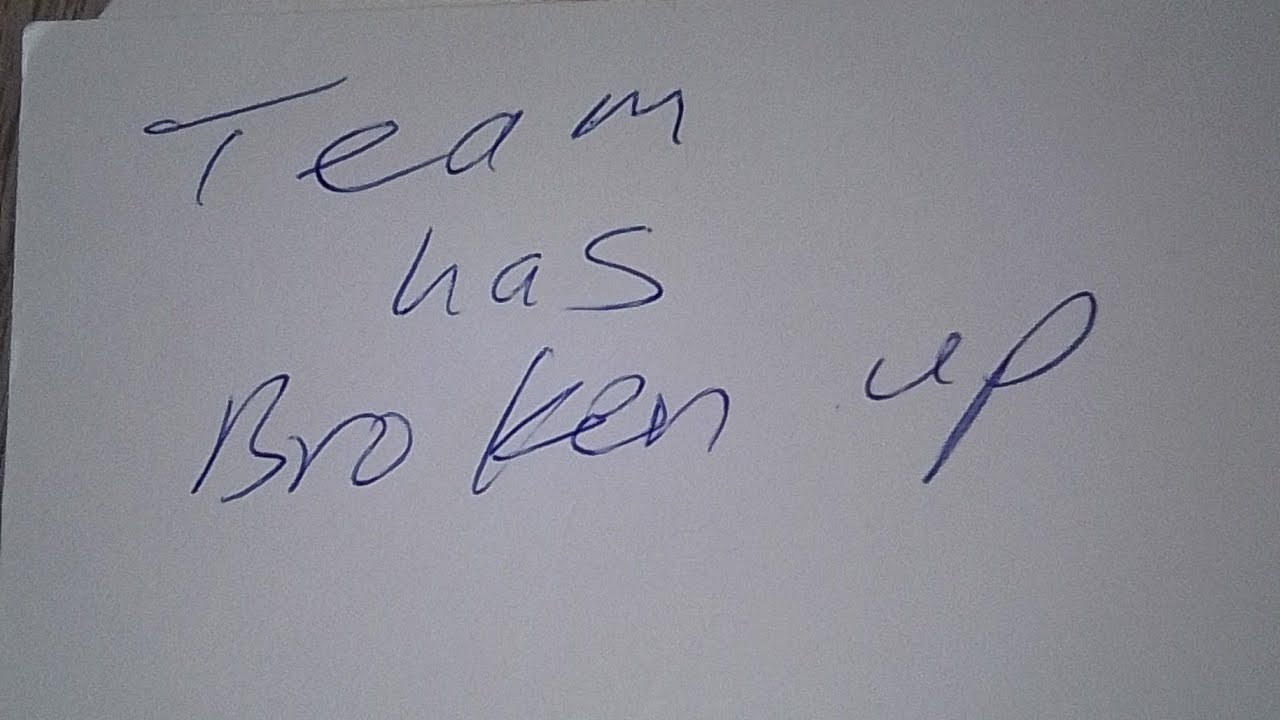 Team
has
Broken up